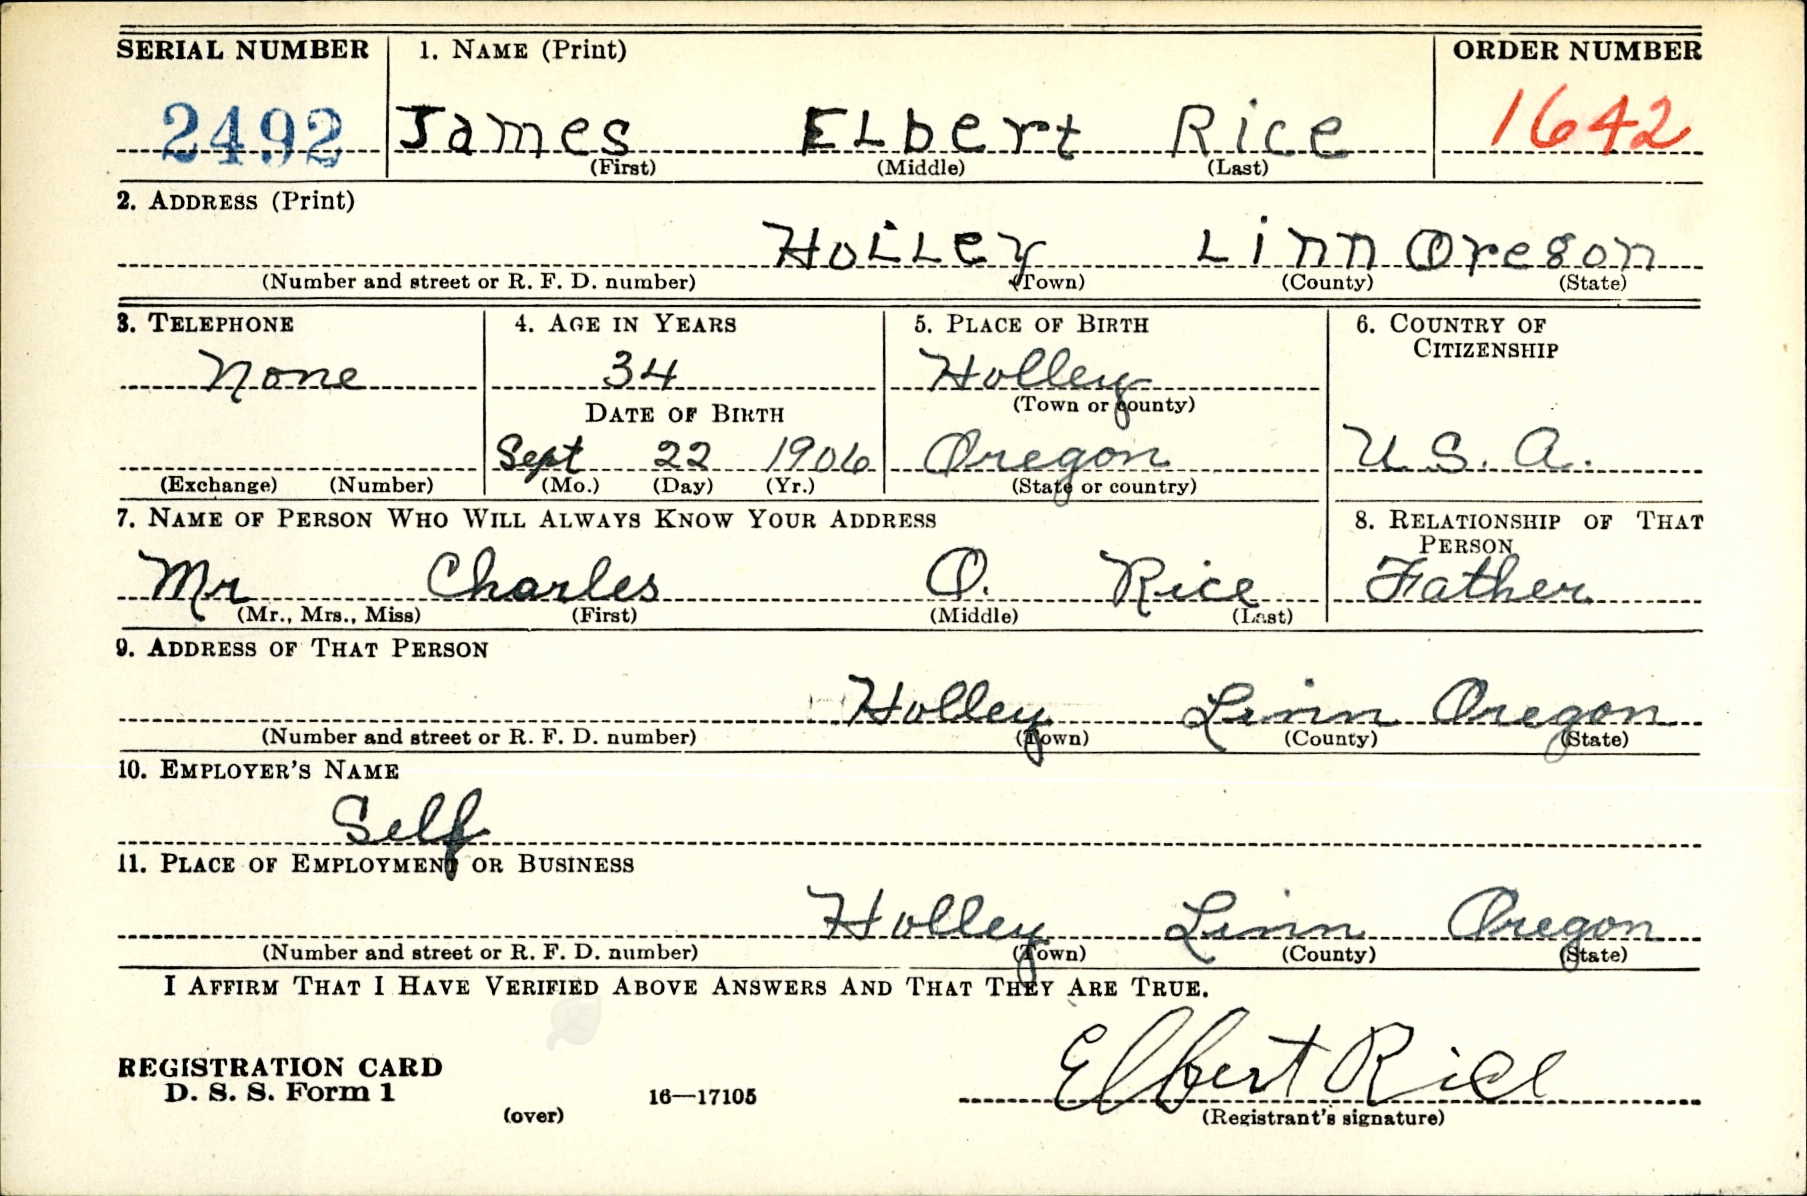 SERIAL NUMBER 1. NAME (Print) ORDER NUMBER
2492 James ELbert Rice 1642
(First) (Middle) (Last)
2. ADDRESS (Print)
HoLLey Linn Oregon
(Number and street or R. F. D. number) (Town) (County) (State)
3. TELEPHONE 4. AGE IN YEARS 5. PLACE OF BIRTH 6. COUNTRY OF
CITIZENSHIP
None 34 Holley
(Town or county)
DATE OF BIRTH
Sept 22 1906 Oregon U.S.A.
(Exchange) (Number) (Mo.) (Day) (Yr.) (State or country)
7. NAME OF PERSON WHO WILL ALWAYS KNOW YOUR ADDRESS 8. RELATIONSHIP OF THAT
PERSON
Mr Charles O. Rice Father
(Mr., Mrs., Miss) (First) (Middle) (Last)
9. ADDRESS OF THAT PERSON
Holley Linn Oregon
(Number and street or R. F. D. number) (Town) (County) (State)
10. EMPLOYER'S NAME
Self
11. PLACE OF EMPLOYMENT OR BUSINESS
Holley Linn Oregon
(Number and street or R. F. D. number) (Town) (County) (State)
I AFFIRM THAT I HAVE VERIFIED ABOVE ANSWERS AND THAT THEY ARE TRUE.
Elbert Rice
REGISTRATION CARD
D. S. S. Form 1 16—17105
(over) (Registrant's signature)